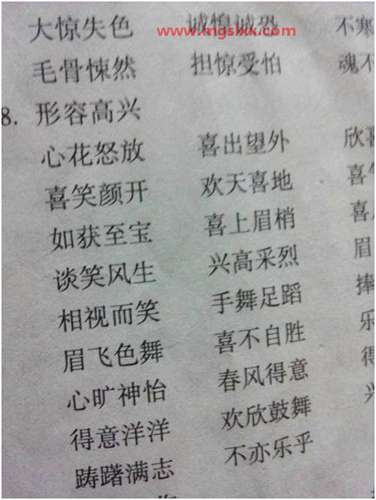 大惊失色 诚惶诚恐 不寒
www.mgsxlx.com
毛骨悚然 担惊受怕 魂不
8. 形容高兴
心花怒放 喜出望外 欣喜
喜笑颜开 欢天喜地 喜
如获至宝 喜上眉梢 喜
谈笑风生 兴高采烈 眉
相视而笑 手舞足蹈 捧
眉飞色舞 喜不自胜 乐
心旷神怡 春风得意 得
得意洋洋 欢欣鼓舞 兴
踌躇满志 不亦乐乎